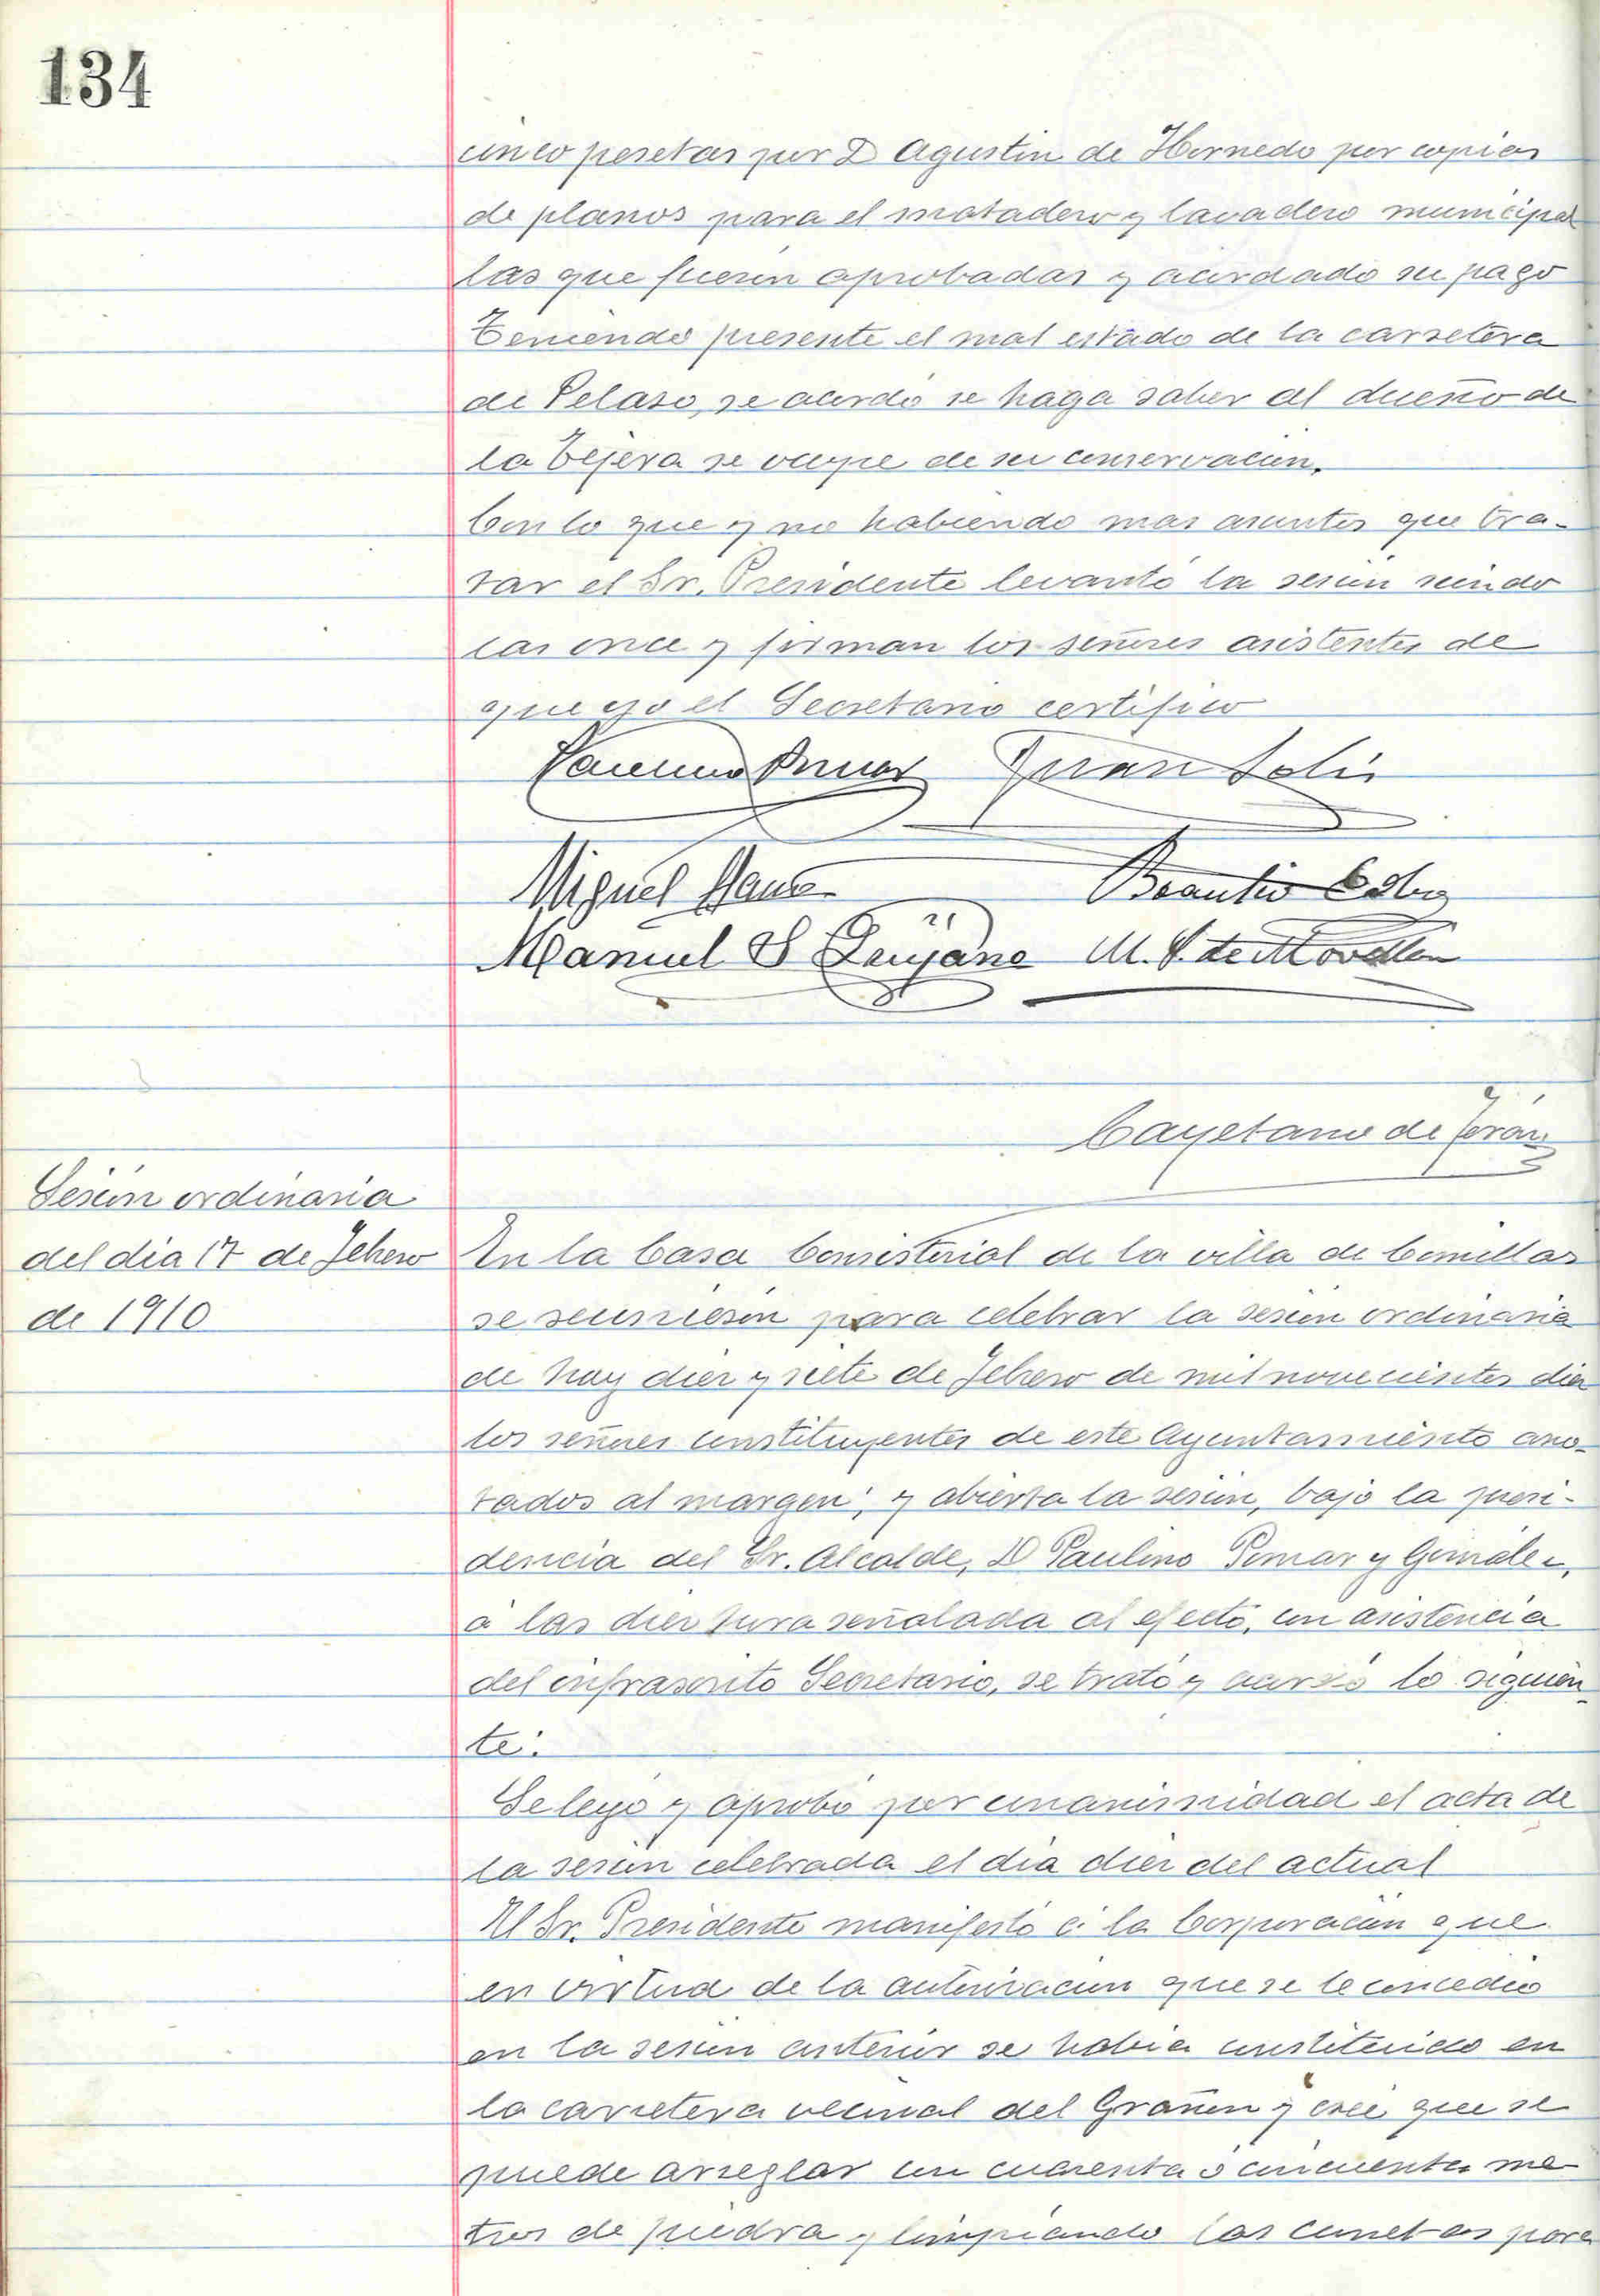 134
cinco pesetas por D Agustin de Hornedo por copias
de planos para el matadero y lavadero municipal
las que fueron aprobadas y acordado su pago
Teniendo presente el mal estado de la carretera
de Pelaso, se acordó se haga saber al dueño de
la Tejera se ocupe de su conservacion.
Con lo que y no habiendo mas asuntos que tra-
tar el Sr. Presidente levantó la sesion siendo
las once y firman los señores asistentes de
que yo el Secretario certifico
Paulino Pomar Juan Solis
Miguel Braulio
Manuel S Quijano M. S. de Movellan
Cayetano de Terán
Sesion ordinaria
del dia 17 de Febrero
de 1910
En la Casa Consistorial de la villa de Comillas
se reunieron para celebrar la sesion ordinaria
de hoy diez y siete de Febrero de mil novecientos diez
los señores constituyentes de este Ayuntamiento ano-
tados al margen; y abierta la sesion, bajo la presi-
dencia del Sr. Alcalde, D Paulino Pomar y Gonzalez,
á las diez hora señalada al efecto, con asistencia
del infrascrito Secretario, se trató y acordó lo siguien-
te:
Se leyó y aprobó por unanimidad el acta de
la sesion celebrada el dia diez del actual
El Sr. Presidente manifestó á la Corporacion que
en virtud de la autorizacion que se le concedio
en la sesion anterior se habia constituido en
la carretera vecinal del Grañon y cree que se
puede arreglar con cuarenta ó cincuenta me-
tros de piedra y limpiando las cunetas para